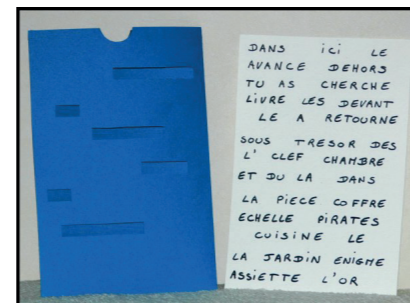 DANS ici LE
AVANCE DEHORS
TU AS CHERCHE
LIVRE LES DEVANT
LE A RETOURNE
SOUS TRESOR DES
L' CLEF CHAMBRE
ET DU LA DANS
LA PIECE COFFRE
ECHELLE PIRATES
CUISINE LE
LA JARDIN ENIGME
ASSIETTE L'OR